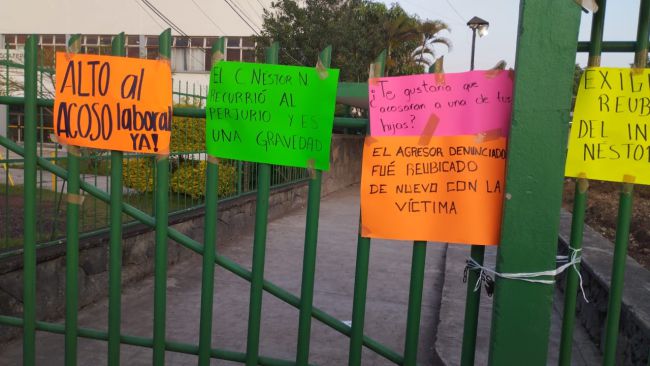 ALTO al
ACOSO laboral
YA!
EL C. NÉSTOR N
RECURRIÓ AL
PERJURIO Y ES
UNA GRAVEDAD
¿Te gustaría que
acosaran a una de tus
hijas?
EL AGRESOR DENUNCIADO
FUÉ REUBICADO
DE NUEVO CON LA
VÍCTIMA
EXIG
REUB
DEL IN
NÉSTOR